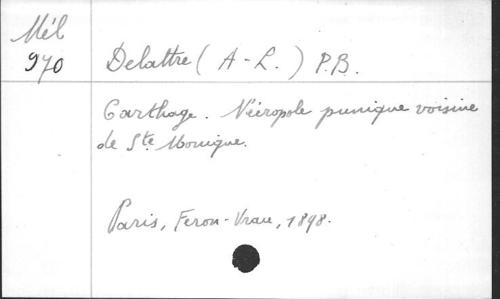 Mél
970
Delattre (A-L.) P.B.
Carthage. Nécropole punique voisine
de Ste Monique.
Paris, Feron-Vrau, 1898.